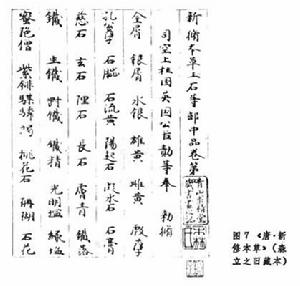 新脩本草玉石等部中品卷第
司空上柱國英國公臣勣等奉 勑脩
金屑 銀屑 水銀 雄黃 雌黃 殷孽
孔公孽 石腦 石流黃 陽起石 凝水石 石膏
慈石 玄石 理石 長石 膚青 鐵落
鐵 生鐵 鋼鐵 鐵精 光明鹽 綠鹽
密陀僧 紫鉚騏驎竭 桃花石 珊瑚 石花
图7 《唐·新
修本草》(森
立之旧藏本)